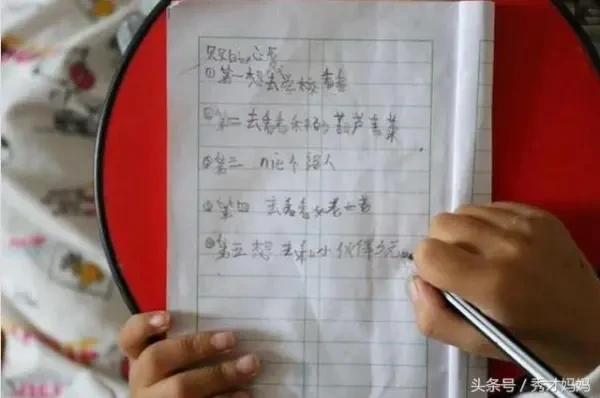 的心愿
①第一想去学校看看
②第二去看看 的葫芦青菜
③第三 nie个泥人
④第四 去看看 老
⑤第五想去和小伙伴玩
头条号／秀才妈妈